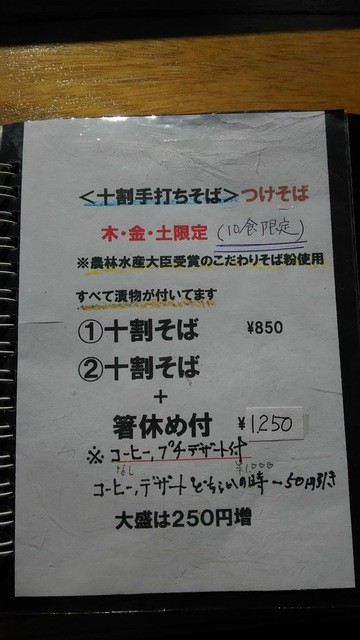 <十割手打ちそば>つけそば
木・金・土限定 (10食限定)
※農林水産大臣受賞のこだわりそば粉使用
すべて漬物が付いてます
①十割そば ¥850
②十割そば
+
箸休め付 ¥1,250
※コーヒー,プチデザート付
なし ¥1,000
コーヒー,デザート どちらかの時 -50円引き
大盛は250円増